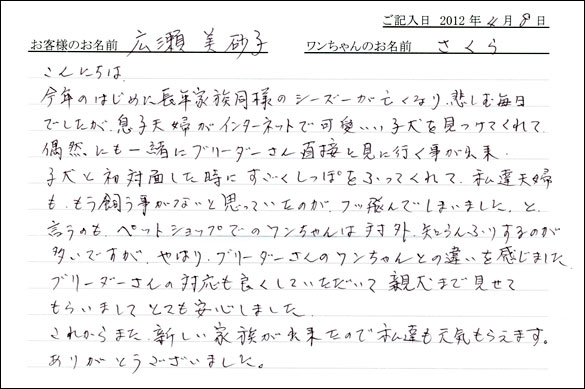 ご記入日 2012 年 4 月 8 日
お客様のお名前 広瀬 美砂子 ワンちゃんのお名前 さくら
こんにちは
今年のはじめに長年家族同様のシーズーが亡くなり、悲しむ毎日
でしたが、息子夫婦がインターネットで可愛いい子犬を見つけてくれて
偶然にも一緒にブリーダーさん直接と見に行く事が出来
子犬と初対面した時にすごくしっぽをふってくれて、私達夫婦
も、もう飼う事がないと思っていたのが、フッ飛んでしまいました。と
言うのも、ペットショップでのワンちゃんは対外、知らんふりするのが
多いですが、やはり、ブリーダーさんのワンちゃんとの違いを感じました
ブリーダーさんの対応も良くしていただいて親犬まで見せて
もらいましてとても安心しました
これからまた、新しい家族が出来たので私達も元気もらえます。
ありがとうございました。